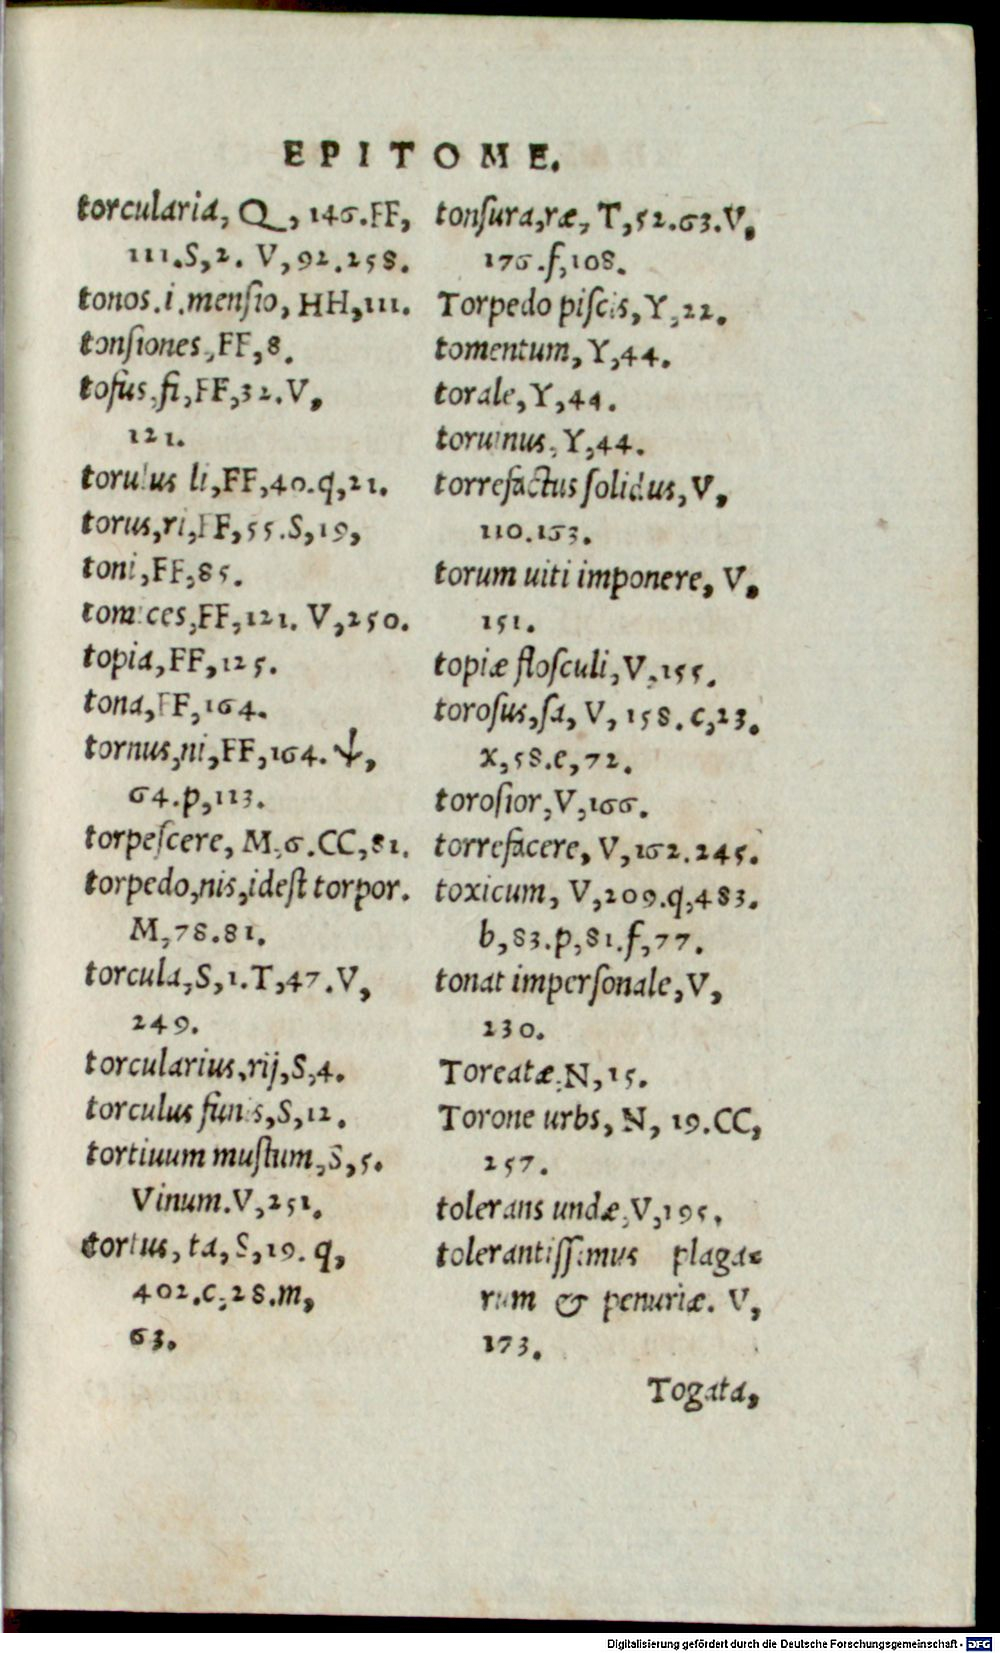 EPITOME.
torcularia, Q, 146.FF,
111.S,2. V,92.258.
tonos.i.mensio, HH,111.
tonsiones,FF,8.
tofus,fi,FF,32.V,
121.
torulus li,FF,40.q,21.
torus,ri,FF,55.S,19,
toni,FF,85.
tomices,FF,121. V,250.
topia,FF,125.
tona,FF,164.
tornus,ni,FF,164. Ψ,
64.p,113.
torpescere, M,6.CC,81.
torpedo,nis,idest torpor.
M,78.81.
torcula,S,1.T,47.V,
249.
torcularius,rij,S,4.
torculus funis,S,12.
tortiuum mustum,S,5.
Vinum.V,251.
tortus, ta,S,19. q,
402.c,28.m,
63.
tonsura,ræ, T,52.63.V,
176.f,108.
Torpedo piscis,Y,22.
tomentum,Y,44.
torale,Y,44.
toruinus,Y,44.
torrefactus solidus,V,
110.153.
torum uiti imponere, V,
151.
topiæ flosculi,V,155.
torosus,sa, V, 158. c,23.
x,58.e,72.
torosior,V,166.
torrefacere, V,162.245.
toxicum, V,209.q,483.
b,83.p,81.f,77.
tonat impersonale,V,
230.
Toreatæ,N,15.
Torone urbs, N, 19.CC,
257.
tolerans undæ,V,195.
tolerantissimus plaga=
rum & penuriæ. V,
173.
Togata,
Digitalisierung gefördert durch die Deutsche Forschungsgemeinschaft - DFG